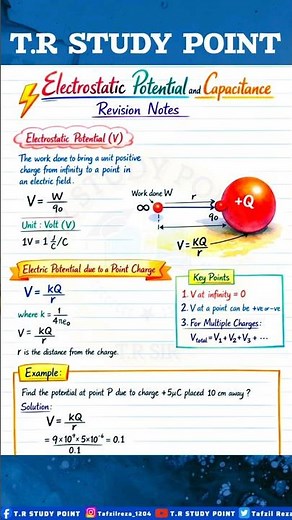 T.R STUDY POINT
Electrostatic Potential and Capacitance
Revision Notes
Electrostatic Potential (V)
The work done to bring a unit positive
charge from infinity to a point in
an electric field.
V = W/q₀
Unit : Volt (V)
1V = 1 J/C
Work done W
∞
r
q₀
+Q
V = kQ/r
Electric Potential due to a Point Charge
V = kQ/r
where k = 1/4πε₀
V = kQ/r
r is the distance from the charge.
Key Points
1. V at infinity = 0
2. V at a point can be +ve or -ve
3. For Multiple Charges:
Vtotal = V₁ + V₂ + V₃ + ...
Example:
Find the potential at point P due to charge +5μC placed 10 cm away ?
Solution:
V = kQ/r
= 9×10⁹×5×10⁻⁶/0.1 = 0.1
T.R STUDY POINT
Tafzilreza_1204
T.R STUDY POINT
Tafzil Reza